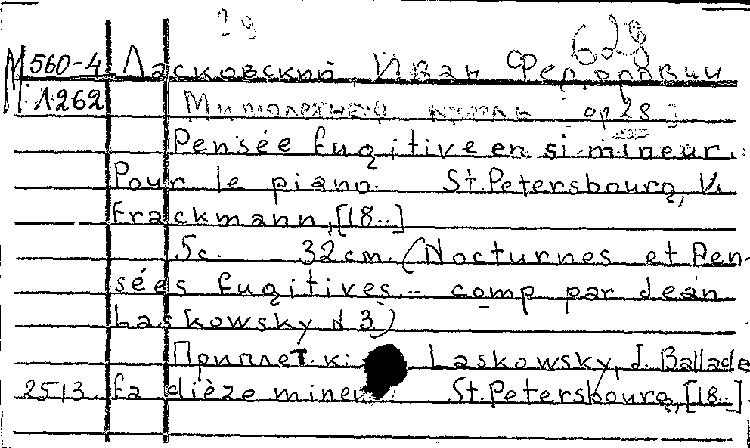 29 628
М 560-4 Ласковский, Иван Федорович
1262 Мимолетная мысль ор 28
Pensée fugitive en si mineur.
Pour le piano. St.Petersbourg, V.
Frackmann, [18..]
5с. 32cm. (Nocturnes et Pen-
sées fugitives - comp par Jean
Laskowsky № 3)
Приплет. к: Laskowsky, J. Ballade
2513 fa dièze mineur. St.Petersbourg, [18..]